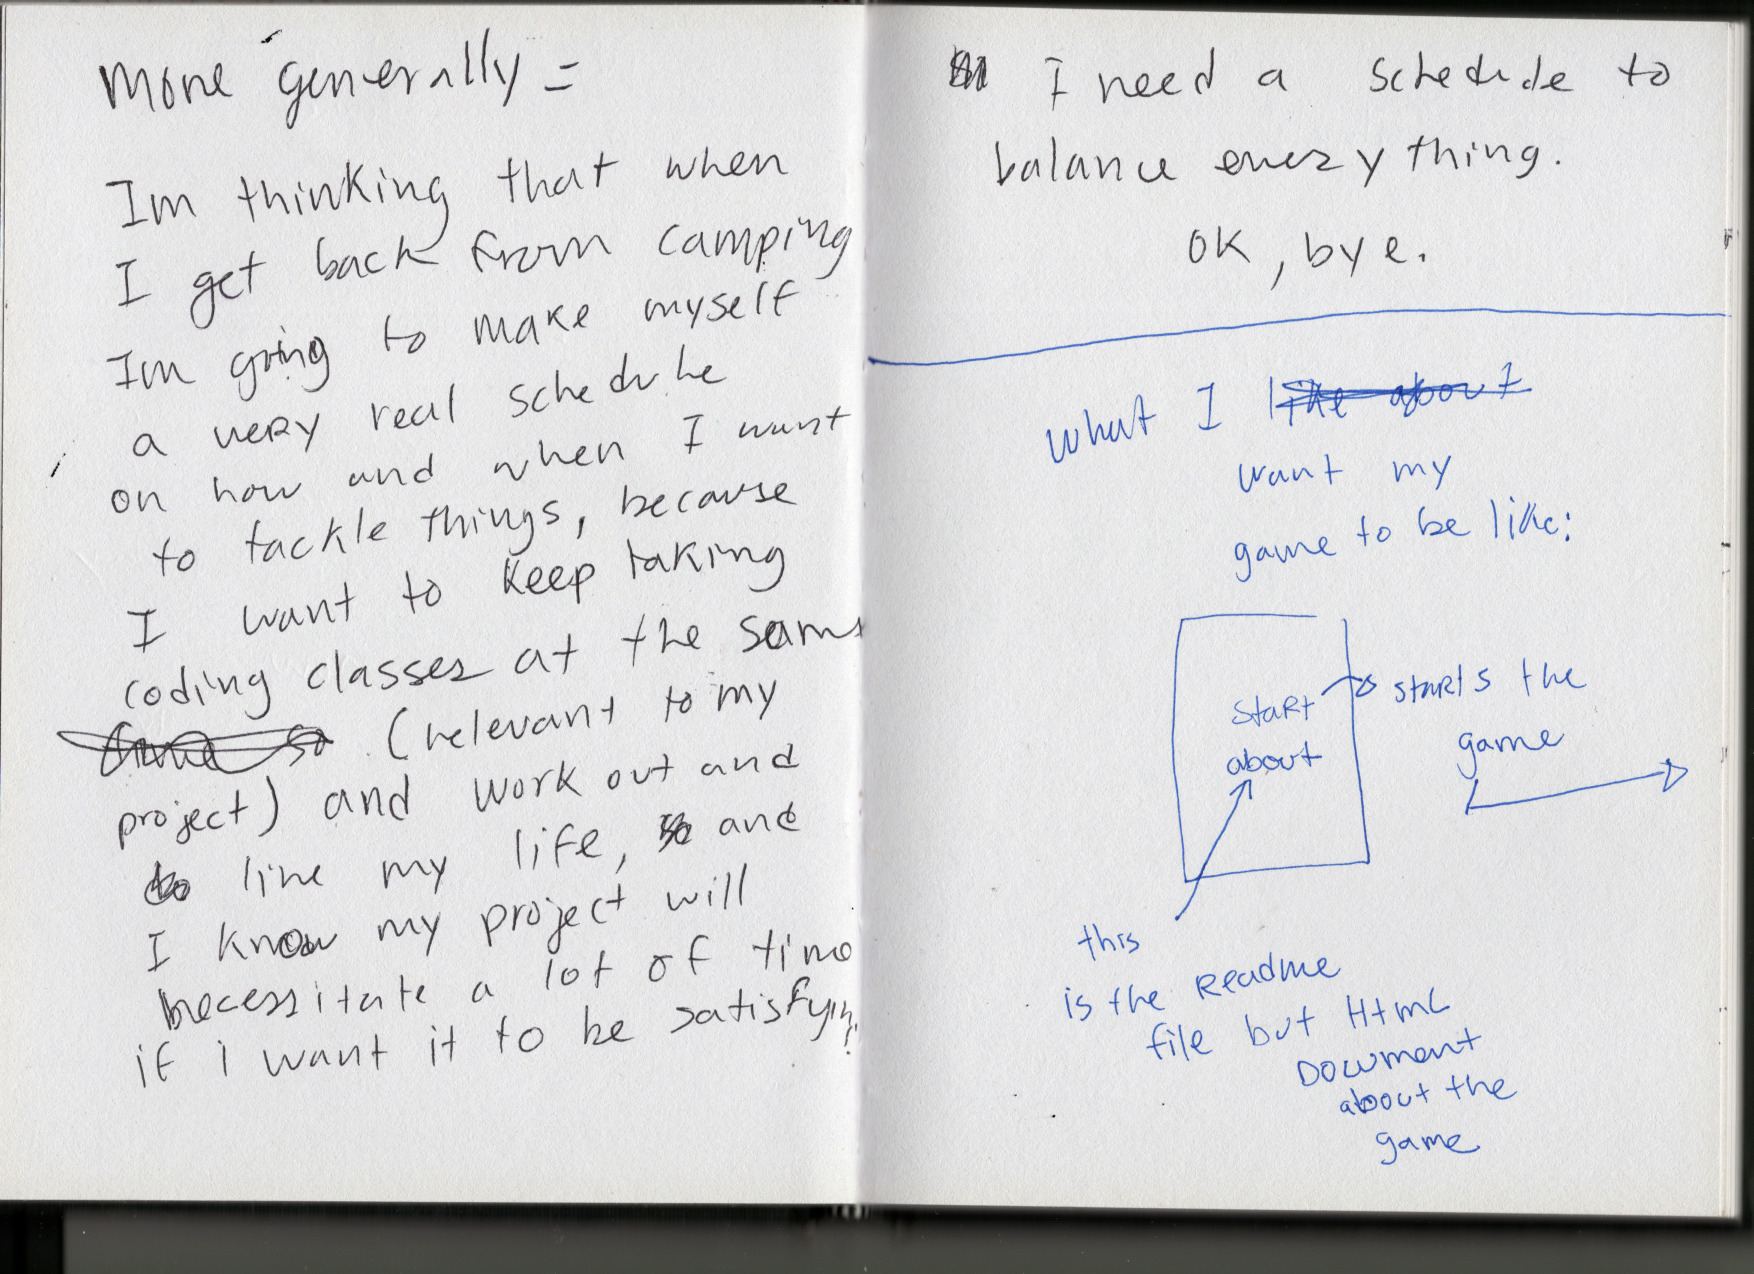 More generally =
Im thinking that when
I get back from camping
Im going to make myself
a very real schedule
on how and when I want
to tackle things, because
I want to keep taking
coding classes at the same
(relevant to my
project) and work out and
to live my life, and
I know my project will
necessitate a lot of time
if I want it to be satisfying.
I need a schedule to
balance everything.
OK, bye.
What I like about
want my
game to be like:
Start
about
starts the
game
this
is the Readme
file but HTML
Document
about the
game